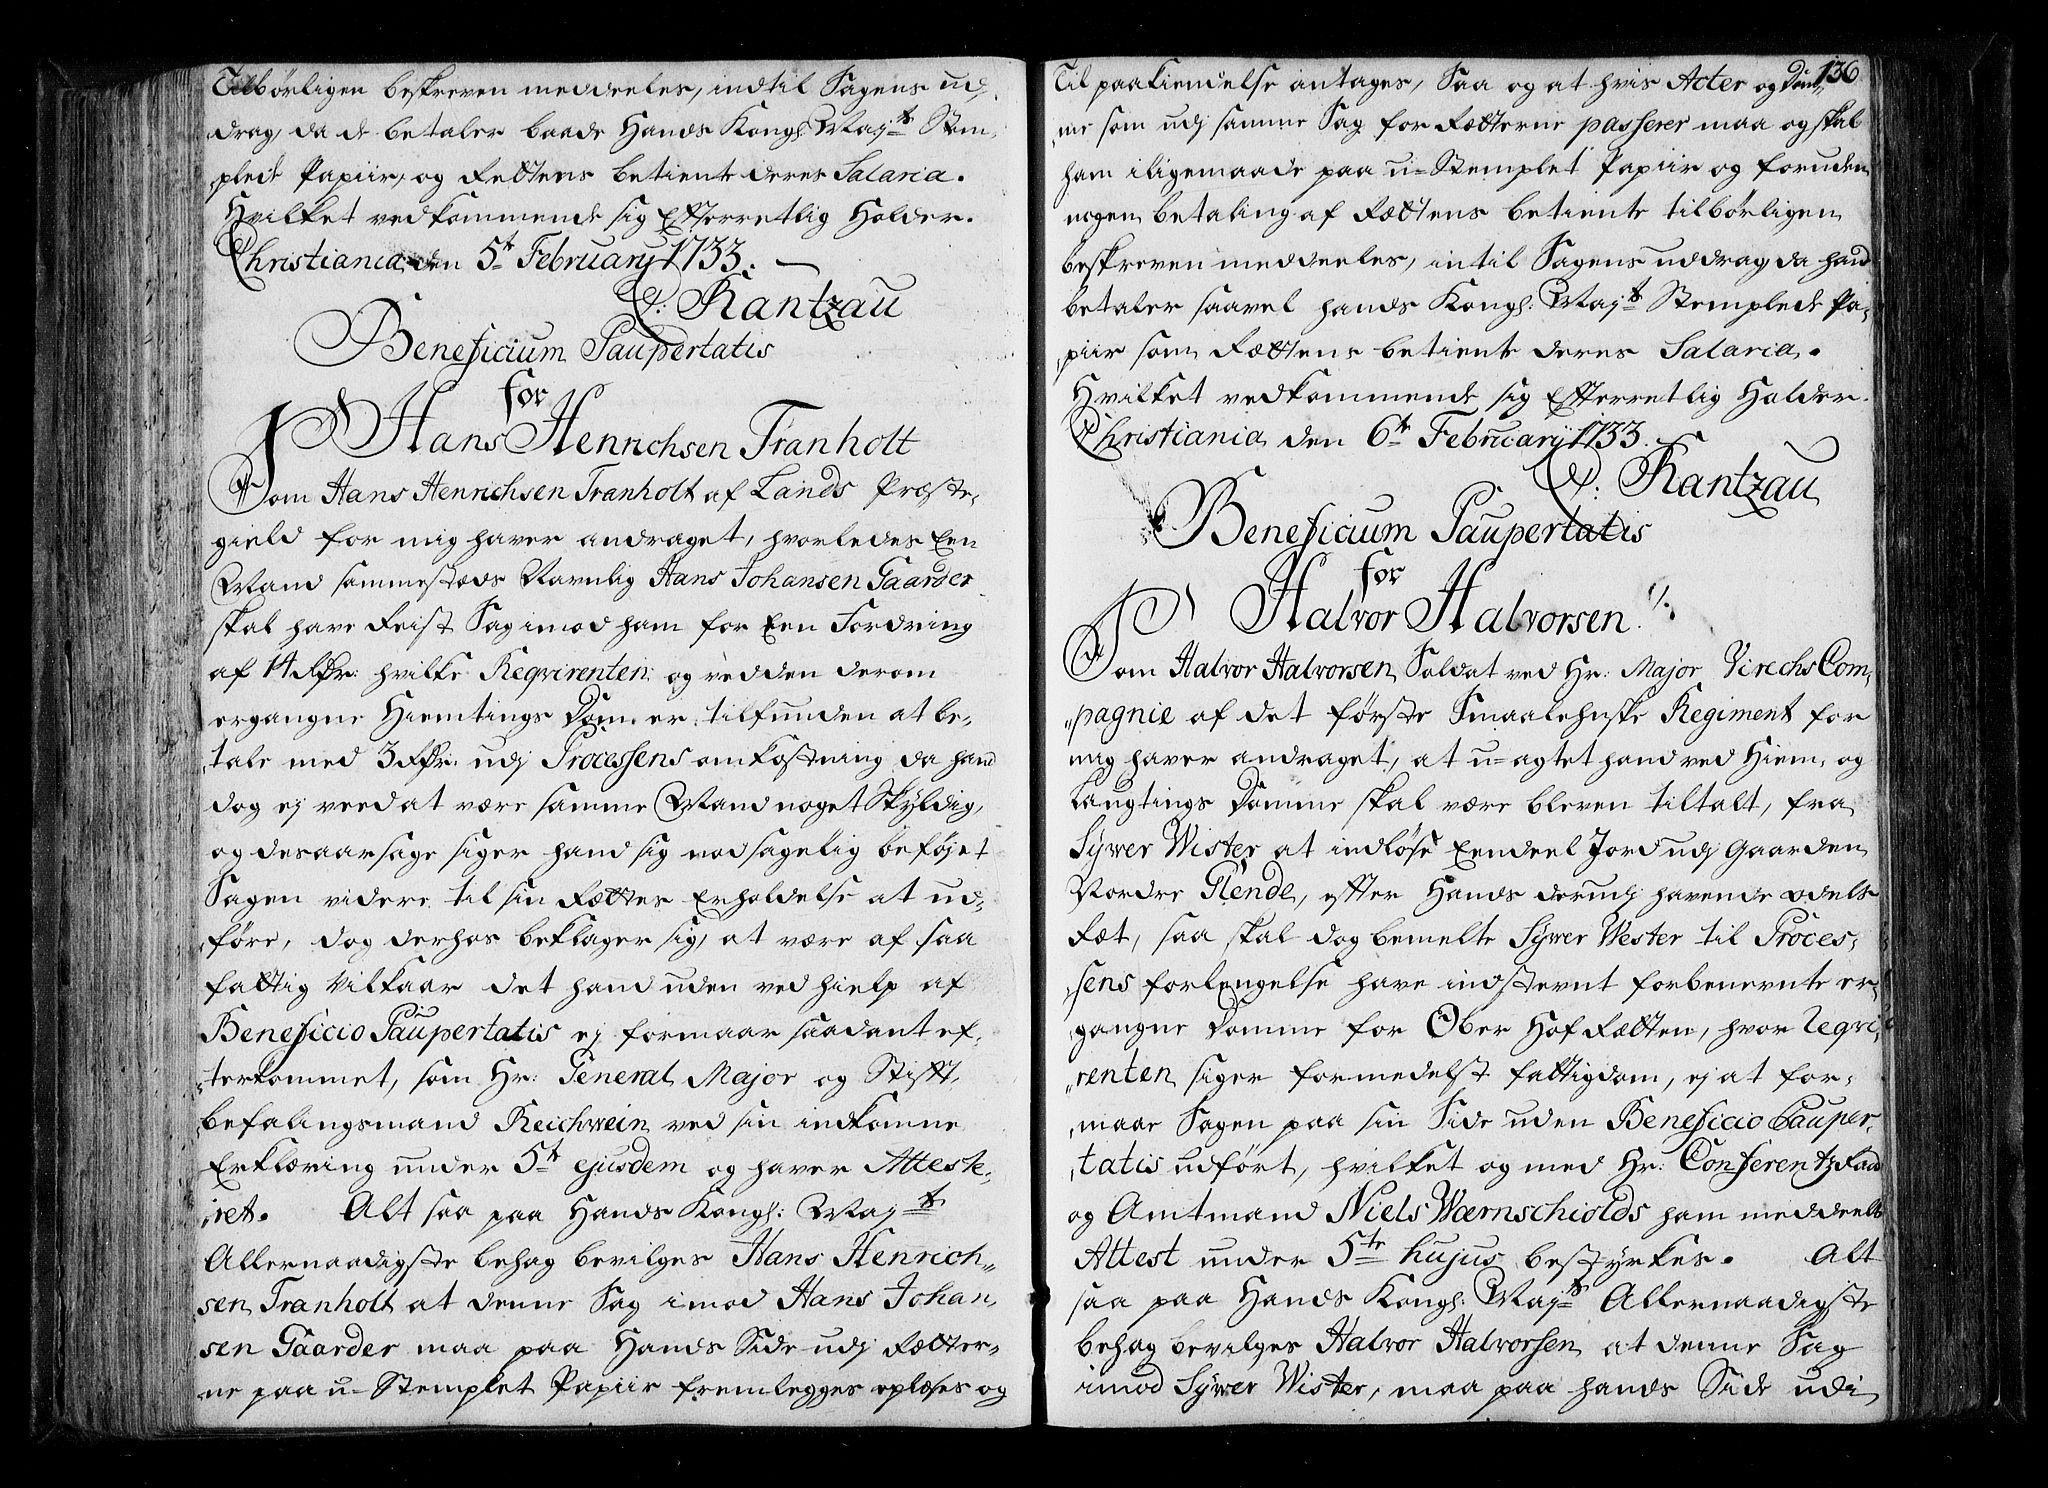 Tilbørligen beskreven meddeeles, indtil Sagens ud,
drag, da de betaler baade Hands Kongl: Mayts Stem,
plede Papiir, og Rettens betiente deres Salaria.
Hvilket vedkommende sig Efterretlig Holder.
Christiania den 5t February 1733.
C: Rantzau
Beneficium Paupertatis
for
Hans Henrichsen Tranholt
Som Hans Henrichsen Tranholt af Lands Præste,
gield for mig haver andraget, hvorledes Een
Mand sammestæds Navnlig Hans Johansen Gaarder
skal have Reist Sag imod ham for Een Fordring
af 14 Rdr: hvilke Reqvirenten og ved den derom
ergangne Hiemtings Dom er tilfunden at be,
tale med 3 Rdr: udj Processens omkostning da hand
dog ej veed at være samme Mand noget Skyldig,
og desaarsage siger hand sig nødsagelig beføjet
Sagen videre til sin Rættes Erholdelse at ud,
føre, dog derhos beklager sig, at være af saa
fattig Vilkaar det hand uden ved hielp af
Beneficio Paupertatis ej formaar saadant ef,
terkommet, som Hr: General Major og Stift,
befalingsmand Reichwein ved sin indkomne
Erklæring under 5t ejusdem og haver Atteste,
ret. Alt saa paa Hands Kongl: Mayts
Allernaadigste behag bevilges Hans Henrich,
sen Tranholt at denne Sag imod Hans Johan,
sen Gaarder maa paa Hands Side udj Retter,
ne paa u-Stemplet Papiir fremlegges oplæses og
136
Til paakiendelse antages, Saa og at hvis Acter og Dom,
me som udj samme Sag for Retterne passerer maa og skal
ham iligemaade paa u-Stemplet Papiir og foruden
nogen betaling af Rættens betiente tilbørligen
beskreven meddeeles, intil Sagens uddrag da hand
betaler saavel hands Kongl: Mayts Stemplede Pa,
piir som Rættens betiente deres Salaria.
Hvilket vedkommende sig Efterretlig Holder.
Christiania den 6t February 1733.
C: Rantzau
Beneficium Paupertatis
for
Halvor Halvorsen
Som Halvor Halvorsen Soldat ved Hr: Major Virechs Com,
pagnie af det første Smaalehnske Regiment for
mig haver andraget, at u-agtet hand ved Hiem, og
Laugtings Domme skal være bleven tiltalt, fra
Syver Wister at indløse Eendeel Jord udj Gaarden
Nordre Glende, efter Hands derudj havende odels
Ræt, saa skal dog bemelte Syver Wester til Proces,
sens forlengelse have indstevnt forbenevnte er,
gangne Domme for Ober Hof Rætten, hvor Reqvi,
renten siger formedelst fattigdom, ej at for,
maae Sagen paa sin Side uden Beneficio Pauper,
tatis udført, hvilket og med Hr: Conferentz Raad
og Amtmand Niels Wærnschiolds ham meddeelte
Attest under 5te hujus bestyrkes. Alt
saa paa Hands Kongl: Mayts Allernaadigste
behag bevilges Halvor Halvorsen at denne Sag
imod Syver Wister, maa paa hands Side udi